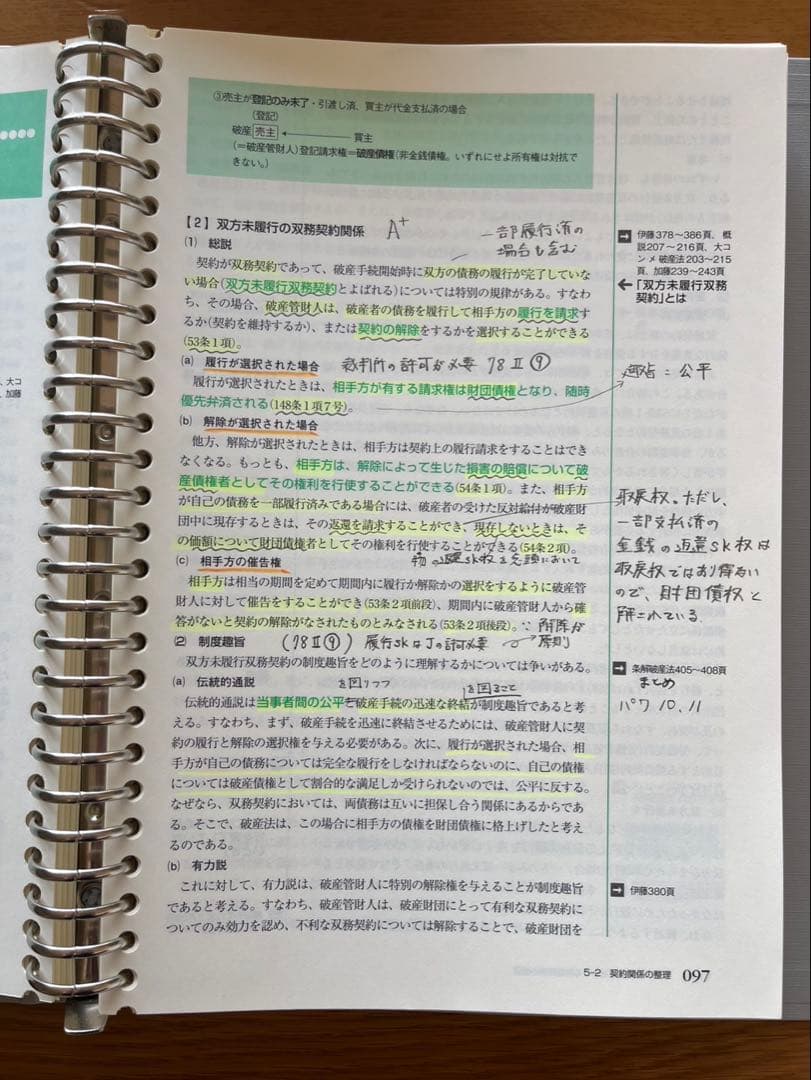 ③売主が登記のみ未了・引渡し済、買主が代金支払済の場合
(登記)
破産 売主 ← 買主
(=破産管財人)登記請求権=破産債権(非金銭債権。いずれにせよ所有権は対抗で
きない。)
【2】双方未履行の双務契約関係 A+ 一部履行済の
場合も含む
(1) 総説
契約が双務契約であって、破産手続開始時に双方の債務の履行が完了していな
い場合(双方未履行双務契約とよばれる)については特別の規律がある。すなわ
ち、その場合、破産管財人は、破産者の債務を履行して相手方の履行を請求す
るか(契約を維持するか)、または契約の解除をするかを選択することができる
(53条1項)。
→ 伊藤378〜386頁、概
説207〜216頁、大コ
ンメ破産法203〜215
頁、加藤239〜243頁
←「双方未履行双務
契約」とは
(a) 履行が選択された場合 裁判所の許可が必要 78Ⅱ⑨
履行が選択されたときは、相手方が有する請求権は財団債権となり、随時
優先弁済される(148条1項7号)。
趣旨=公平
(b) 解除が選択された場合
他方、解除が選択されたときは、相手方は契約上の履行請求をすることはでき
なくなる。もっとも、相手方は、解除によって生じた損害の賠償について破
産債権者としてその権利を行使することができる(54条1項)。また、相手方
が自己の債務を一部履行済みである場合には、破産者の受けた反対給付が破産財
団中に現存するときは、その返還を請求することができ、現存しないときは、そ
の価額について財団債権者としてその権利を行使することができる(54条2項)。
取戻権。ただし、
一部支払済の
金銭の返還SK権は
取戻権ではあり得ない
ので、財団債権と
解されている。
(c) 相手方の催告権 物の返還SK権を念頭において
相手方は相当の期間を定めて期間内に履行か解除かの選択をするように破産管
財人に対して催告をすることができ(53条2項前段)、期間内に破産管財人から確
答がないと契約の解除がなされたものとみなされる(53条2項後段)。∵解除が
原則
(2) 制度趣旨 (78Ⅱ⑨) 履行SKはJの許可必要
双方未履行双務契約の制度趣旨をどのように理解するかについては争いがある。
→ 条解破産法405〜408頁
まとめ
パワ 10、11
(a) 伝統的通説 を図りつつ を図ること
伝統的通説は当事者間の公平と破産手続の迅速な終結が制度趣旨であると考
える。すなわち、まず、破産手続を迅速に終結させるためには、破産管財人に契
約の履行と解除の選択権を与える必要がある。次に、履行が選択された場合、相
手方が自己の債務については完全な履行をしなければならないのに、自己の債権
については破産債権として割合的な満足しか受けられないのでは、公平に反する。
なぜなら、双務契約においては、両債務は互いに担保し合う関係にあるからであ
る。そこで、破産法は、この場合に相手方の債権を財団債権に格上げしたと考え
るのである。
(b) 有力説
これに対して、有力説は、破産管財人に特別の解除権を与えることが制度趣旨
であると考える。すなわち、破産管財人は、破産財団にとって有利な双務契約に
ついてのみ効力を認め、不利な双務契約については解除することで、破産財団を
→ 伊藤380頁
5-2 契約関係の整理 097
大コ
加藤